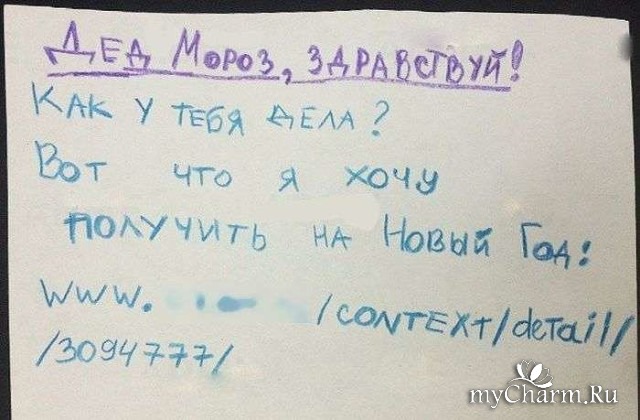 Дед Мороз, здравствуй!
Как у тебя дела?
Вот что я хочу
получить на Новый Год:
www. /context/detail/
/3094777/
myCharm.Ru